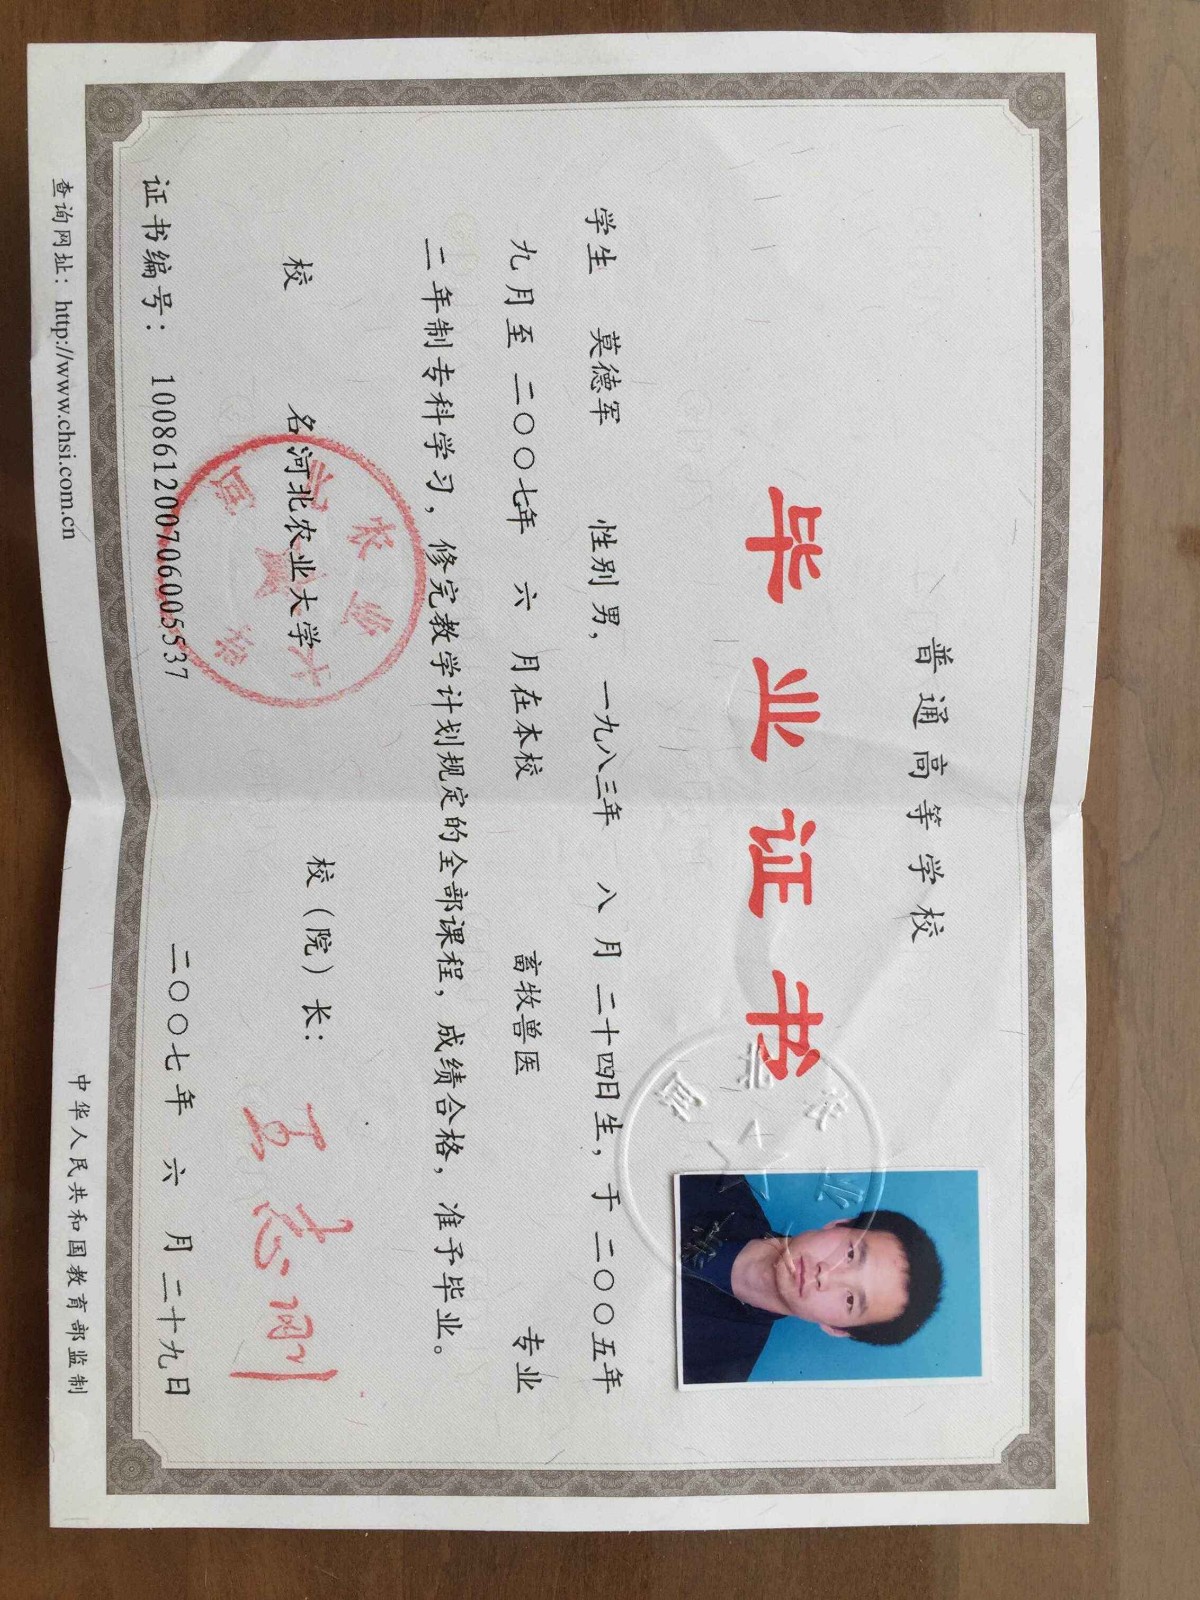 普通高等学校
毕业证书
学生 莫德军 性别 男，一九八三年 八 月 二十四日生，于 二〇〇五年
九月至 二〇〇七年 六 月在本校 畜牧兽医 专业
二年制专科学习，修完教学计划规定的全部课程，成绩合格，准予毕业。
校 名 河北农业大学 校（院）长： 王志刚
证书编号： 100861200706005537 二〇〇七年 六 月 二十九日
查询网址：http://www.chsi.com.cn 中华人民共和国教育部监制